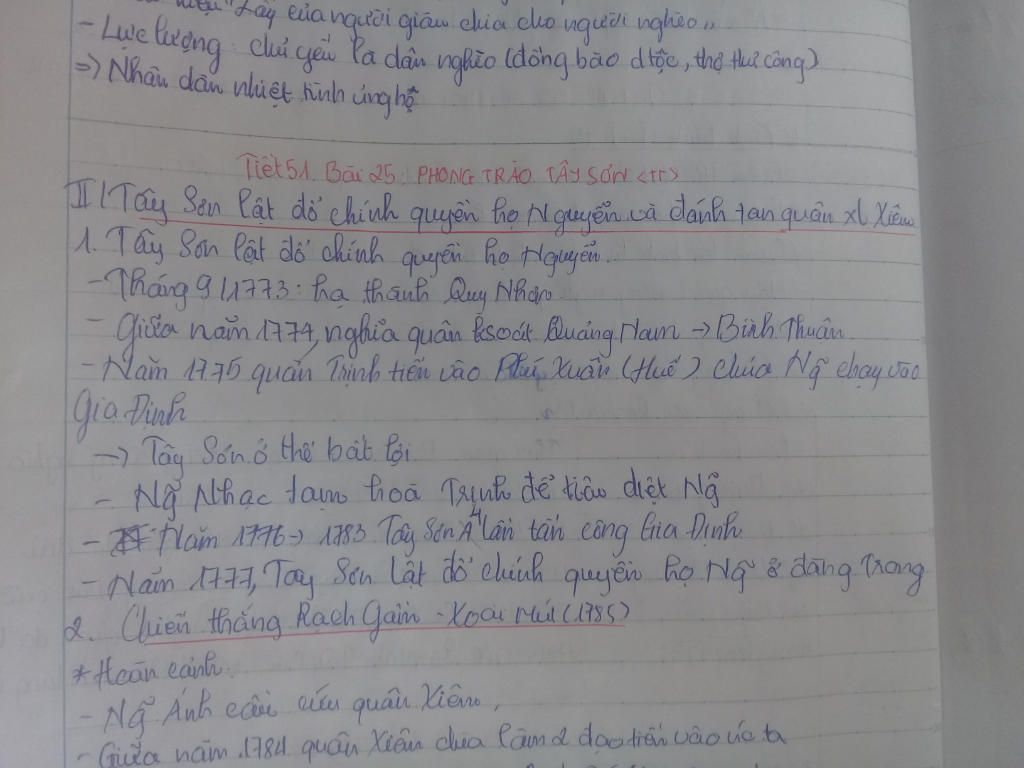 Lấy của người giàu chia cho người nghèo"
- Lực lượng: chủ yếu là dân nghèo (đồng bào dtộc, thợ thủ công)
=> Nhân dân nhiệt tình ủng hộ
Tiết 51. Bài 25: PHONG TRÀO TÂY SƠN <tt>
II/ Tây Sơn lật đổ chính quyền họ Nguyễn và đánh tan quân xl Xiêm
1. Tây Sơn lật đổ chính quyền họ Nguyễn.
- Tháng 9/1773: hạ thành Quy Nhơn
- Giữa năm 1774, nghĩa quân ksoát Quảng Nam → Bình Thuận
- Năm 1775 quân Trịnh tiến vào Phú Xuân (Huế) chúa Ng̃ chạy vào
Gia Định
→ Tây Sơn ở thế bất lợi
- Ng̃ Nhạc tạm hoà Trịnh để tiêu diệt Ng̃
- Năm 1776 → 1783 Tây Sơn 4 lần tấn công Gia Định
- Năm 1777, Tây Sơn lật đổ chính quyền họ Ng̃ ở đàng Trong
2. Chiến thắng Rạch Gầm - Xoài Mút (1785)
* Hoàn cảnh.
- Ng̃ Ánh cầu cứu quân Xiêm,
- Giữa năm 1784 quân Xiêm chia làm 2 đạo tiến vào nước ta